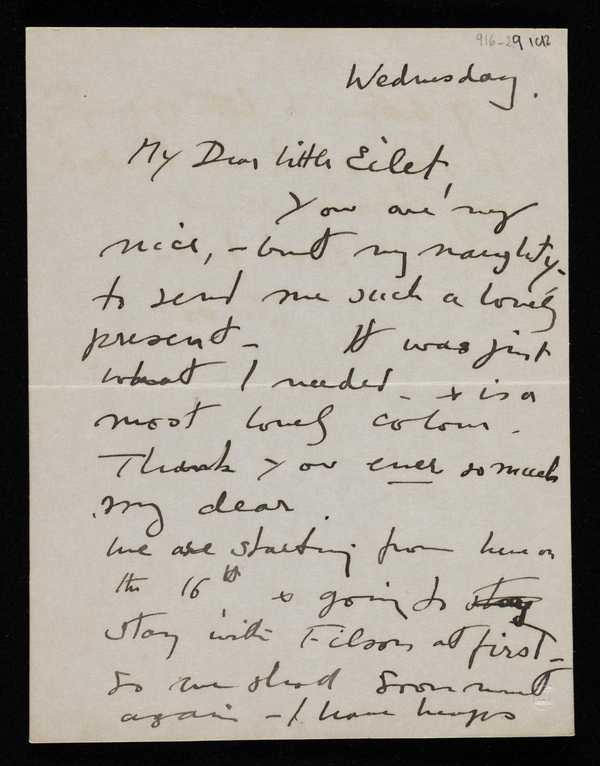 916-29 1012
Wednesday.
My Dear little Eilet,
You are my
nice, - but my naughty,
to send me such a lovely
present - It was just
what I needed - & is a
most lovely colour.
Thank you ever so much
my dear.
We are starting from here on
the 16th & going to stay
stay with Filson at first -
So we shod soon meet
again - I have heaps